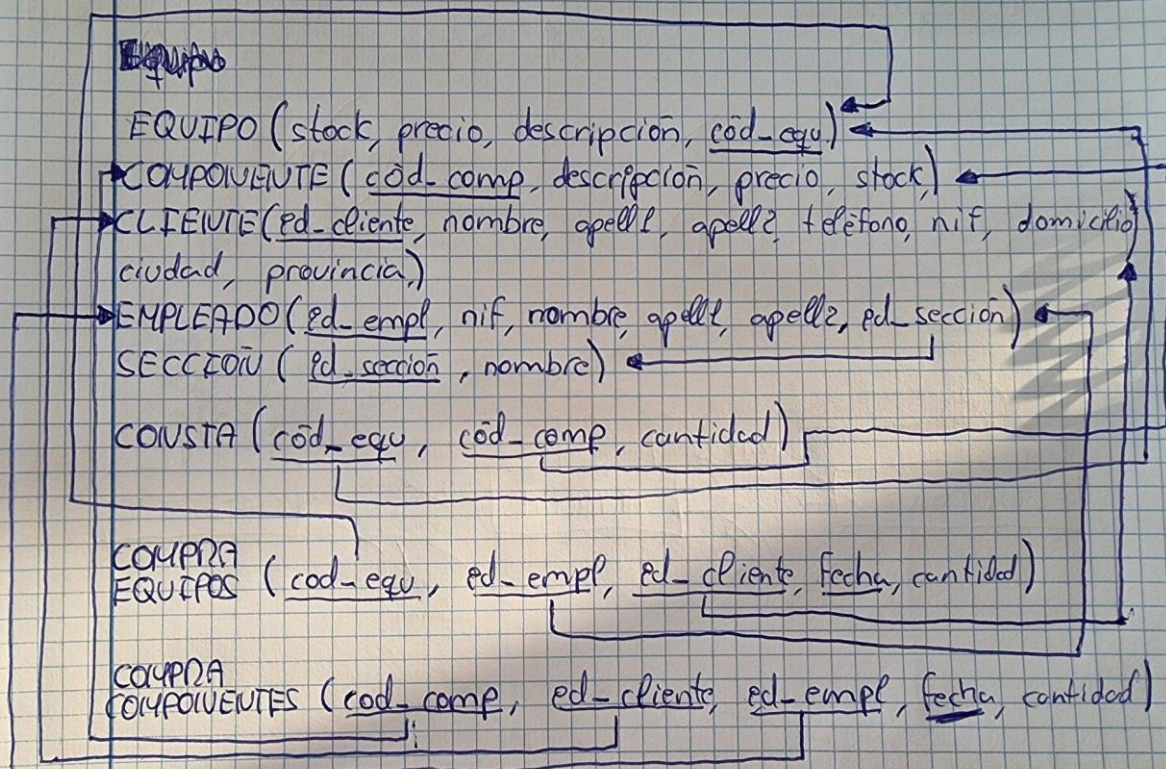 EQUIPO (stock, precio, descripción, cód_equ)
COMPONENTE (cód_comp, descripción, precio, stock)
CLIENTE (id_cliente, nombre, apell1, apell2, teléfono, nif, domicilio
ciudad, provincia)
EMPLEADO (id_empl, nif, nombre, apell1, apell2, id_sección)
SECCIÓN (id_sección, nombre)
CONSTA (cód_equ, cód_comp, cantidad)
COMPRA
EQUIPOS (cod_equ, id_empl, id_cliente, fecha, cantidad)
COMPRA
COMPONENTES (cod_comp, id_cliente, id_empl, fecha, cantidad)